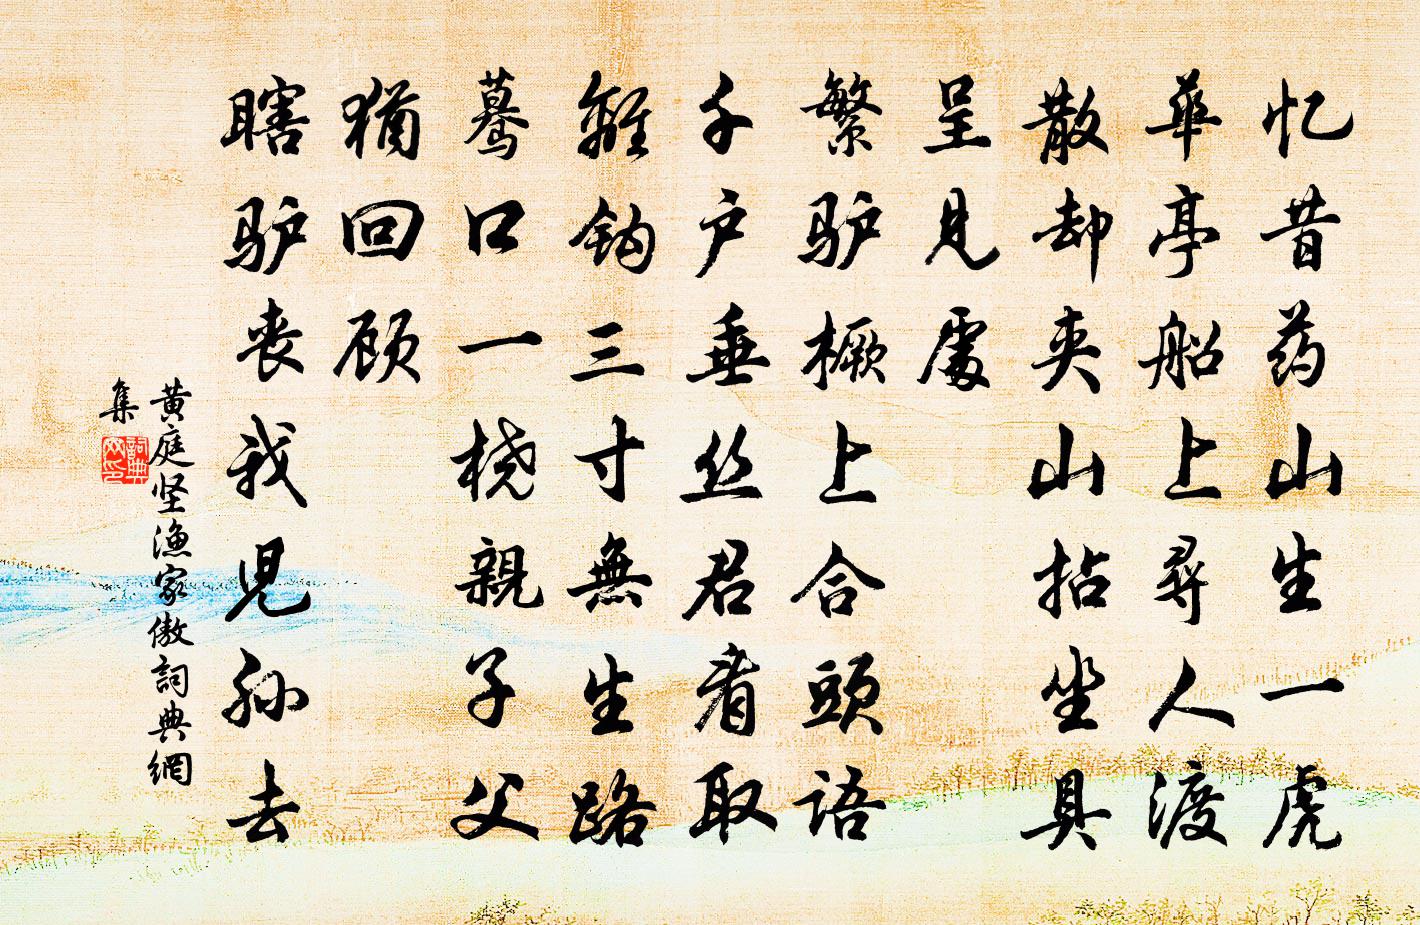 忆昔药山生一虎
華亭船上尋人渡
散却夹山拈坐具
呈见處
繁驴橛上合頭语
千尺垂丝君看取
離钩三寸無生路
蓦口一桡親子父
猶回顾
瞎驴丧我兒孙去
黄庭坚渔家傲詞典網
集
詞典
网印